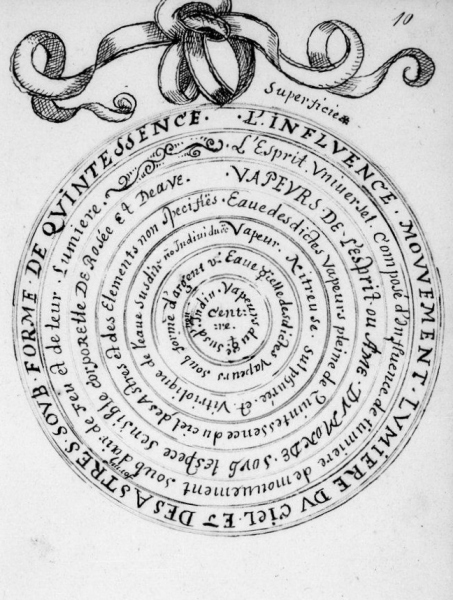 10
Superficie
L'INFLVENCE. MOVVEMENT. LVMIERE DV CIEL ET DES ASTRES. SOVB FORME DE QVINTESSENCE.
L'Esprit Vniversel. composé d'Influence de lumiere de mouuement soub d'air de feu et de leur Lumiere.
VAPEVRS DE L'esprit ou AME DV MONDE. SOVB l'espece sensible corporelle DE Rosée ET Deaue.
Eaue desdictes Vapeurs pleine de Quintessence du ciel des Astres et des Elements non specifiés.
Vapeur. Nitreuse. sulphurée. et. Vitriolique de l'eaue susdi. no Individu
Eaue desdictes Vapeurs soub forme d'argent v.
Vapeurs
Cent:
re.